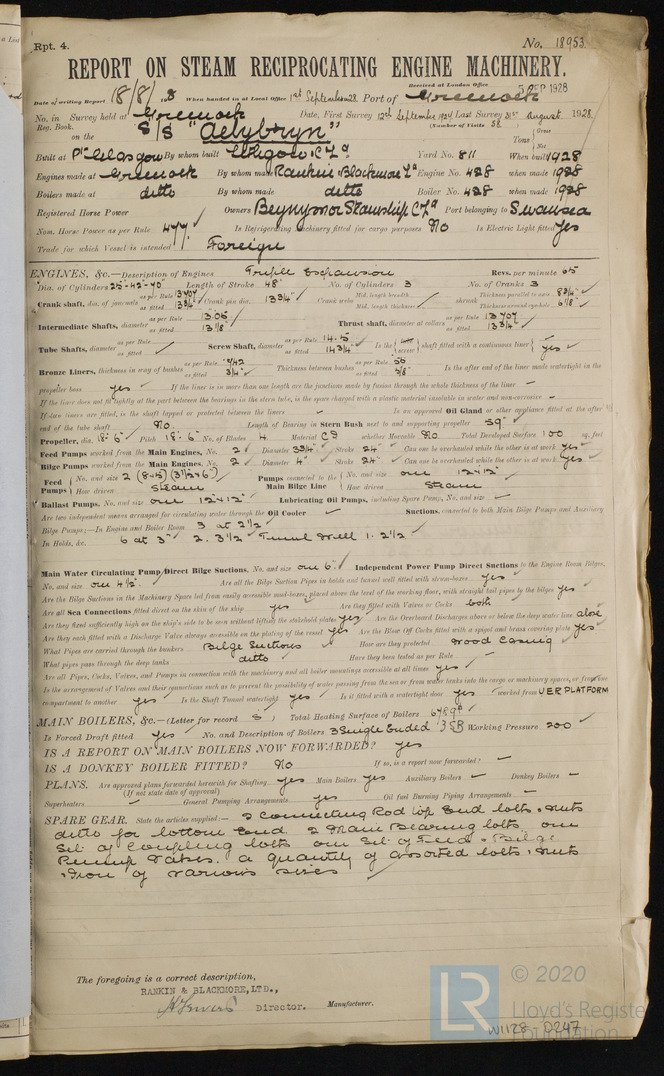 Rpt. 4.
No. 18953
REPORT ON STEAM RECIPROCATING ENGINE MACHINERY.
Received at London Office 5 SEP 1928
Date of writing Report 18/8/1928 When handed in at Local Office 1st September 28 Port of Greenock
No. in Survey held at Greenock Date, First Survey 12th September 1927 Last Survey August 1928
Reg. Book. (Number of Visits 58)
on the S/S "Aelybryn" Tons { Gross Net
Built at Pt Glasgow By whom built Lithgows Ld Yard No. 811 When built 1928
Engines made at Greenock By whom made Rankin & Blackmore Ld Engine No. 428 when made 1928
Boilers made at ditto By whom made ditto Boiler No. 428 when made 1928
Registered Horse Power Owners Beynymor Steamship C Ld Port belonging to Swansea
Nom. Horse Power as per Rule 477 Is Refrigerating Machinery fitted for cargo purposes No Is Electric Light fitted Yes
Trade for which Vessel is intended Foreign
ENGINES, &c.—Description of Engines Triple Expansion Revs. per minute 65
Dia. of Cylinders 25-42-70 Length of Stroke 48" No. of Cylinders 3 No. of Cranks 3
Crank shaft, dia. of journals as per Rule 13.707 as fitted 13 3/4" Crank pin dia. 13 3/4" Crank webs Mid. length breadth Mid. length thickness shrunk Thickness parallel to axis 8 3/4" Thickness around eye-hole 6 1/8"
Intermediate Shafts, diameter as per Rule 13.05 as fitted 13 1/8" Thrust shaft, diameter at collars as per Rule 13.707 as fitted 13 3/4"
Tube Shafts, diameter as per Rule as fitted Screw Shaft, diameter as per Rule 14.5 as fitted 14 3/4" Is the { tube screw } shaft fitted with a continuous liner { yes
Bronze Liners, thickness in way of bushes as per Rule .742 as fitted 3/4" Thickness between bushes as per Rule .56 as fitted 5/8" Is the after end of the liner made watertight in the
propeller boss yes If the liner is in more than one length are the junctions made by fusion through the whole thickness of the liner –
If the liner does not fit tightly at the part between the bearings in the stern tube, is the space charged with a plastic material insoluble in water and non-corrosive –
If two liners are fitted, is the shaft lapped or protected between the liners – Is an approved Oil Gland or other appliance fitted at the after
end of the tube shaft No Length of Bearing in Stern Bush next to and supporting propeller 59"
Propeller, dia. 18'6" Pitch 18'6" No. of Blades 4 Material CI whether Moveable No Total Developed Surface 100 sq. feet
Feed Pumps worked from the Main Engines, No. 2 Diameter 3 3/4" Stroke 24" Can one be overhauled while the other is at work yes
Bilge Pumps worked from the Main Engines, No. 2 Diameter 4" Stroke 24" Can one be overhauled while the other is at work yes
Feed Pumps { No. and size 2 How driven Steam Pumps connected to the Main Bilge Line { No. and size one 12"x12" How driven Steam
Ballast Pumps, No. and size one 12"x12" Lubricating Oil Pumps, including Spare Pump, No. and size –
Are two independent means arranged for circulating water through the Oil Cooler Suctions, connected to both Main Bilge Pumps and Auxiliary
Bilge Pumps;—In Engine and Boiler Room 3 at 2 1/2"
In Holds, &c. 6 at 3" 2. 3 1/2" Tunnel Well 1. 2 1/2"
Main Water Circulating Pump Direct Bilge Suctions, No. and size one 6" Independent Power Pump Direct Suctions to the Engine Room Bilges,
No. and size one 4 1/2" Are all the Bilge Suction Pipes in holds and tunnel well fitted with strum-boxes yes
Are the Bilge Suctions in the Machinery Space led from easily accessible mud-boxes, placed above the level of the working floor, with straight tail pipes to the bilges yes
Are all Sea Connections fitted direct on the skin of the ship yes Are they fitted with Valves or Cocks both
Are they fixed sufficiently high on the ship's side to be seen without lifting the stokehold plates yes Are the Overboard Discharges above or below the deep water line above
Are they each fitted with a Discharge Valve always accessible on the plating of the vessel yes Are the Blow Off Cocks fitted with a spigot and brass covering plate yes
What Pipes are carried through the bunkers Bilge Suctions How are they protected Wood Casing
What pipes pass through the deep tanks ditto Have they been tested as per Rule
Are all Pipes, Cocks, Valves, and Pumps in connection with the machinery and all boiler mountings accessible at all times yes
Is the arrangement of Valves and their connections such as to prevent the possibility of water passing from the sea or from water tanks into the cargo or machinery spaces, or from one
compartment to another yes Is the Shaft Tunnel watertight yes Is it fitted with a watertight door yes worked from UER PLATFORM
MAIN BOILERS, &c.—(Letter for record S) Total Heating Surface of Boilers 6789
Is Forced Draft fitted yes No. and Description of Boilers 3 Single Ended 3SB Working Pressure 200
IS A REPORT ON MAIN BOILERS NOW FORWARDED? yes
IS A DONKEY BOILER FITTED? No If so, is a report now forwarded? –
PLANS. Are approved plans forwarded herewith for Shafting yes Main Boilers yes Auxiliary Boilers – Donkey Boilers –
(If not state date of approval)
Superheaters General Pumping Arrangements yes Oil fuel Burning Piping Arrangements –
SPARE GEAR. State the articles supplied:— 2 Connecting Rod top End bolts & nuts
ditto for bottom End. 2 Main Bearing bolts. one
Set of Coupling bolts one Set of Feed & Bilge
Pump Valves. a quantity of assorted bolts & nuts
& Iron of various sizes
The foregoing is a correct description,
RANKIN & BLACKMORE, LTD.,
Director. Manufacturer.
LR
© 2020
Lloyd's Register
Foundation
W1128 0247